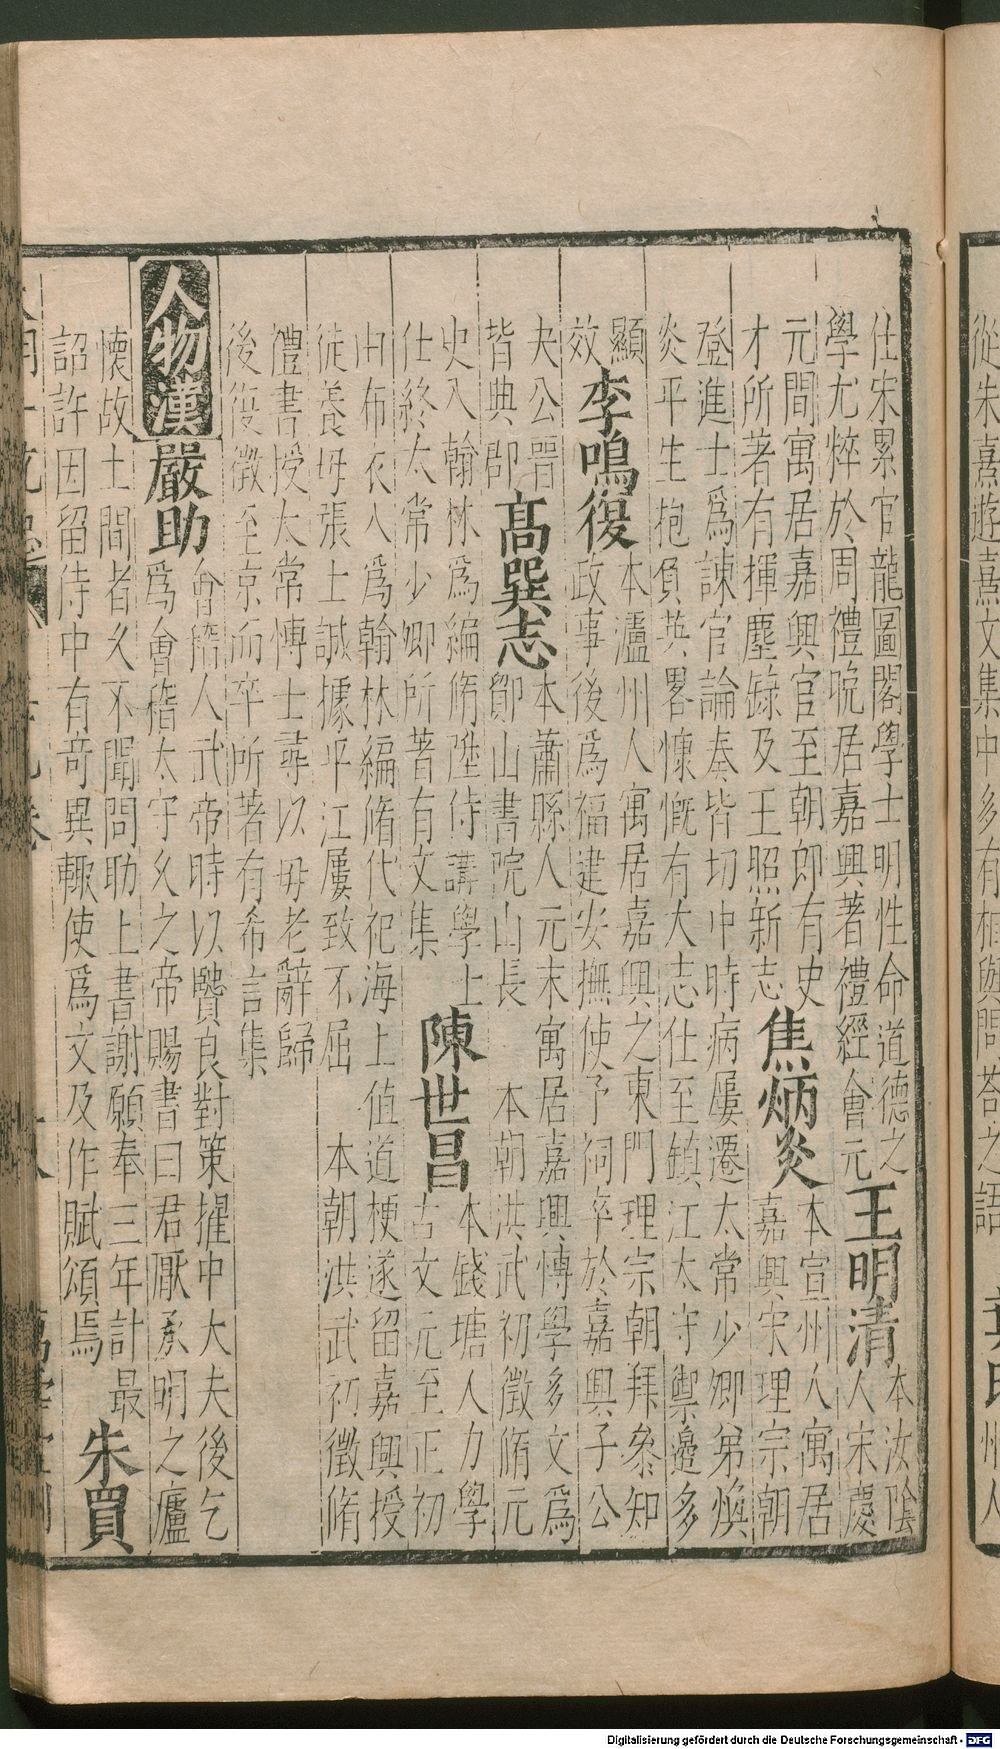 仕宋累官龍圖閣學士明性命道德之
學尤粹於周禮晚居嘉興著禮經會元
王明清
本汝陰
人宋慶
元間寓居嘉興官至朝郎有史
才所著有揮麈錄及王照新志
焦炳炎
本宣州人寓居
嘉興宋理宗朝
登進士爲諫官論奏皆切中時病屢遷太常少卿弟煥
炎平生抱負英畧慷慨有大志仕至鎮江太守禦邊多
顯
效
李鳴復
本瀘州人寓居嘉興之東門理宗朝拜叅知
政事後爲福建安撫使予祠卒於嘉興子公
夬公晉
皆典郡
髙巽志
本蕭縣人元末寓居嘉興博學多文爲
鄮山書院山長 本朝洪武初徵脩元
史入翰林爲編脩陞侍講學士
仕終太常少卿所著有文集
陳世昌
本錢塘人力學
古文元至正初
由布衣入爲翰林編脩代祀海上値道梗遂留嘉興授
徒養母張士誠據平江屢致不屈 本朝洪武初徵脩
禮書授太常博士尋以母老辭歸
後復徵至京而卒所著有希言集
人物漢
嚴助
會稽人武帝時以賢良對策擢中大夫後乞
爲會稽太守久之帝賜書曰君厭承明之廬
懷故土間者久不聞問助上書謝願奉三年計最
詔許因留侍中有奇異輙使爲文及作賦頌焉
朱買
從朱熹遊熹文集中多有相與問荅之語
Digitalisierung gefördert durch die Deutsche Forschungsgemeinschaft - DFG